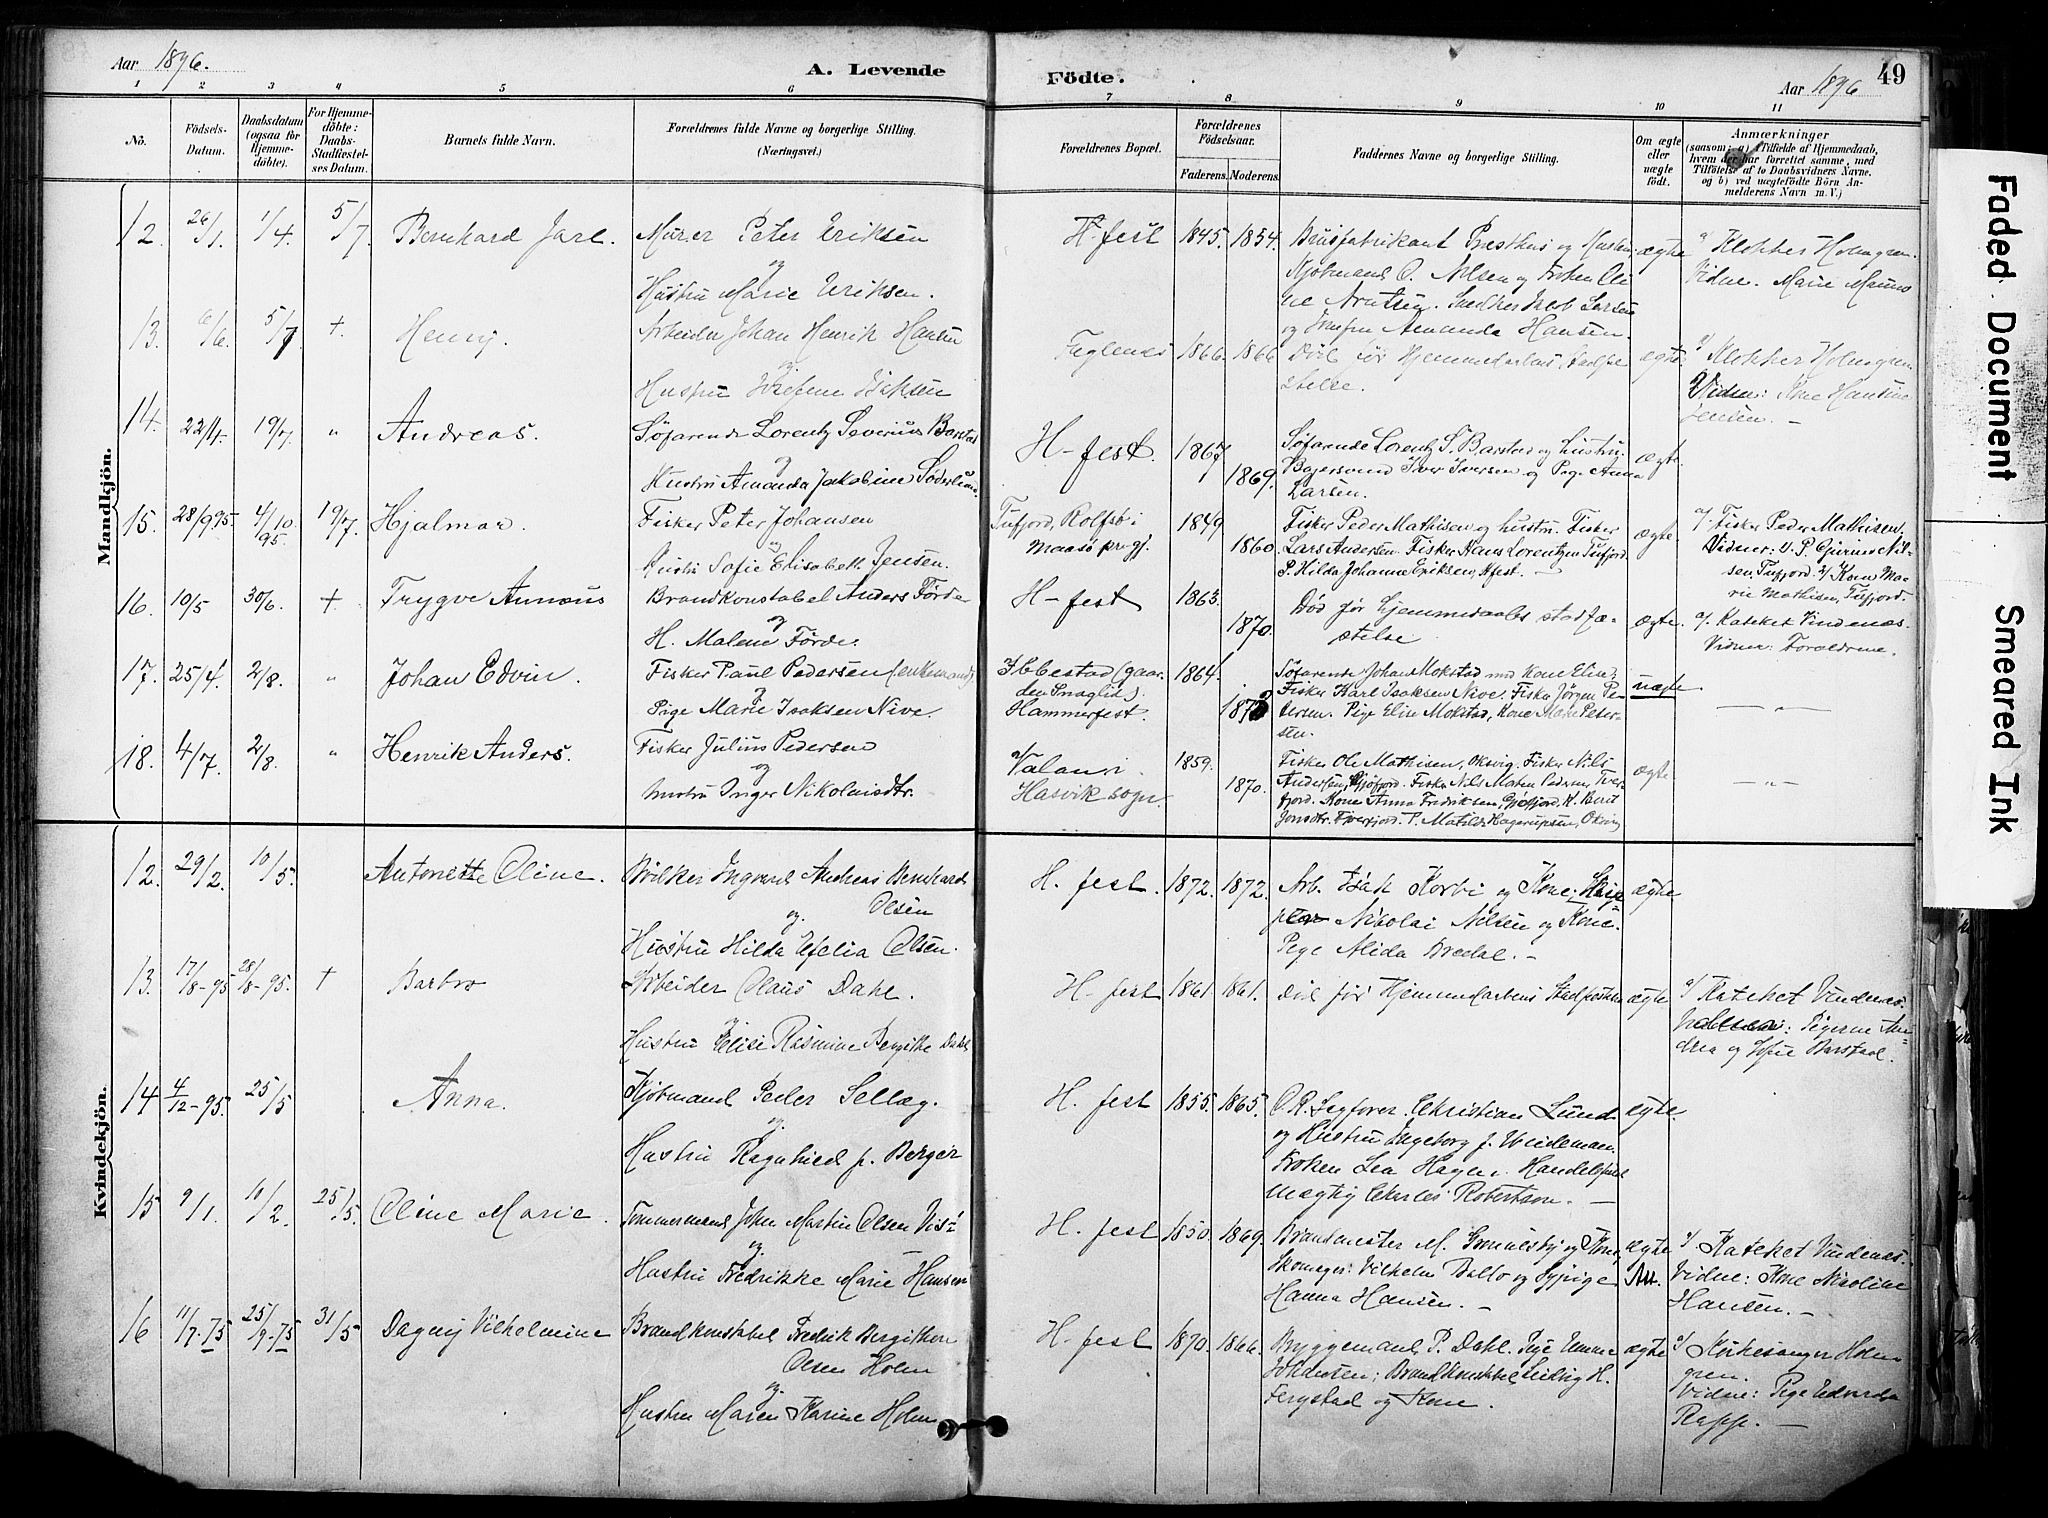 Aar 1896.
A. Levende
Födte.
Aar 1896
49
1 2 3 4 5 6 7 8 9 10 11
No.
Födsels-
Datum.
Daabsdatum
(ogsaa for
Hjemme-
döbte).
For Hjemme-
döbte:
Daabs-
Stadfæstel-
ses Datum.
Barnets fulde Navn.
Forældrenes fulde Navne og borgerlige Stilling.
(Næringsvei.)
Forældrenes Bopæl.
Forældrenes
Födselsaar.
Faderens. Moderens.
Faddernes Navne og borgerlige Stilling.
Om ægte
eller
uægte
födt.
Anmærkninger
(saasom: a) i Tilfælde af Hjemmedaab,
hvem der har forrettet samme, med
Tilföielse af to Daabsvidners Navne.
og b) ved uægtefödte Börn An-
melderens Navn m. V.)
Mandkjön.
12. 26/1. 1/4. 5/7. Bernhard Jarl. Murer Peter Eriksen
og
Hustru Marie Eriksen.
H.fest 1845. 1854. Brusfabrikant Præsthus og Hustru, ægte a/ Klokker Holmgren.
Kjöbmand O. Nilsen og Fröken
Snedker Jacob Larsen
og Amanda Hansen.
Vidne. Marie
13. 6/6. 5/7 + Henry. Arbeider Johan Henrik Hansen
og
Hustru
Fuglenes 1866. 1866 Död för Hjemmedaabens Stadfæ
stelse.
ægte. a/ Klokker Holmgren
Vidne: Kone Hansine
Jensen. —
14. 22/4. 19/7. " Andreas. Söfarende Lorentz Severin Barstad
og
Hustru Amanda Jakobine
H-fest. 1867 1869. Söfarende Lorentz S. Barstad og hustru.
Iver Iversen og Pige Anna
Larsen.
ægte.
15. 28/9 95 4/10 95. 19/7. Hjalmar. Fisker Peter Johansen
og
Hustru Sofie Elisabeth Jensen.
Tufjord, Rolfsö i
Maasö prgj.
1849 1860. Fisker Peder Mathisen og hustru. Fisker
Lars Andersen. Fisker Hans Lorentzen Tufjord.
P. Hilda Johanne Eriksen, Hfest. —
ægte. a/. Fisker Peder Mathisen,
Vidner: 1/. P. Gurine Nil-
sen, Tufjord. 2/ Kone Ma-
rie Mathisen, Tufjord.
16. 10/5 30/6. + Trygve Annæus Brandkonstabel Anders Förde
og
H. Malene Förde.
H-fest 1863. 1870. Död för hjemmedaabs stadfæ-
stelse
ægte. a/. Kateket Vindenæs.
Vidner: Forældrene.
17. 25/4. 2/8. " Johan Edvin. Fisker Paul Pedersen (enkemand)
og
Pige Marie Isaksen Nive.
Ibbestad (gaar-
den Snaglid).
Hammerfest.
1864. Söfarende Johan Mokstad med Kone Elise;
Fisker Karl Isaksen Nive. Fisker Jörgen Pe-
dersen. Pige Elise Mokstad, Kone Marie Peter-
sen.
uægte. — " —
18. 4/7. 2/8. " Henrik Anders. Fisker Julius Pedersen
og
hustru Inger Nikolaisdtr.
Valan i
Hasvik sogn.
1859. 1870. Fisker Ole Mathisen, Oksvig. Fisker Nils
Andersen, Fisker Nils Morten Pedersen, Tver-
fjord. Kone Anna Fredriksen, K. Berit
Jonsdtr. Tverfjord. P. Matilde Hagerupsen, Oksvig
ægte — " —
Kvindekjön.
12. 29/2. 10/5. Antonette Oline. Bödker Ingvard Andreas Bernhard
Olsen
og.
Hustru Hilda Ofelia Olsen.
H. fest. 1872. 1872. Arb. Isak Korbi og Kone;
Nikolai Nilsen og Kone.
Pige Alida Bredal. —
ægte
13. 17/8-95 28/8-95. + Barbro Arbeider Olaus Dahl.
og
Hustru Elise Rasmine Bergitte Dahl
H. fest 1861. 1861. Död för Hjemmedaabens Stadfæstelse ægte a/ Kateket Vindenæs.
Pigerne An-
drea og Sofie Barstad.
14 4/12-95. 25/5 Anna. Kjöbmand Peder Sellæg.
og.
Hustru Ragnhild f. Berger
H. fest 1855. 1865. O.R. Sagförer. Christian Lund
og Hustru Ingeborg f. Lindeman.
Fröken Lea Hagen. Handelsfuld
mægtig Charles Robertson. —
ægte.
15 9/1. 10/2. 25/5. Oline Marie. Tömmermand Johan Martin Olsen
og.
Hustru Fredrikke Marie Hansen
H. fest 1850. 1869. Brandmester M. og Kone,
Skomager: Vilhelm Ballo og Sypige
Hanna Hansen. —
ægte a/ Kateket Vindenæs.
Vidne: Kone Nicoline
Hansen. —
16 11/7.75 25/9.75 31/5 Dagny Vilhelmine Brandkonstabel Fredrik Bergithon
Olsen Holm
og
Hustru Maren Karine Holm
H. fest 1870. 1866. Bryggemand P. Dahl. Pige Emma
Johansen; Brandkonstabel Ludvig H.
Fergstad og Kone.
ægte a/ Kirkesanger Holm
gren.
Vidne: Pige Edvarda
Rapp. —
Faded Document
Smeared Ink